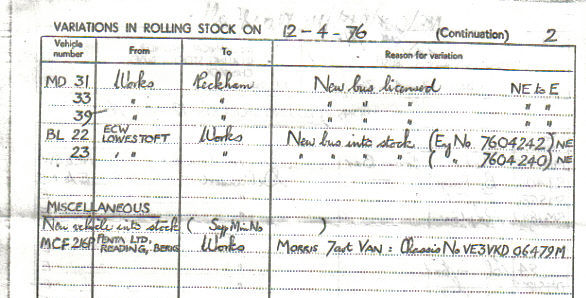 VARIATIONS IN ROLLING STOCK ON 12-4-76 (Continuation) 2
Vehicle number From To Reason for variation
MD 31 Works Peckham New bus licensed NE to E
33 " " " " " " "
39 " " " " " " "
BL 22 ECW LOWESTOFT Works New bus into stock (Eng No. 7604242) NE
23 " " " " " " " ( " 7604240) NE
MISCELLANEOUS
New vehicle into stock ( Sup Min No )
MCF 216P PENTA LTD, READING, BERKS Works MORRIS 7cwt VAN : Chassis No VE3VKD 06479M